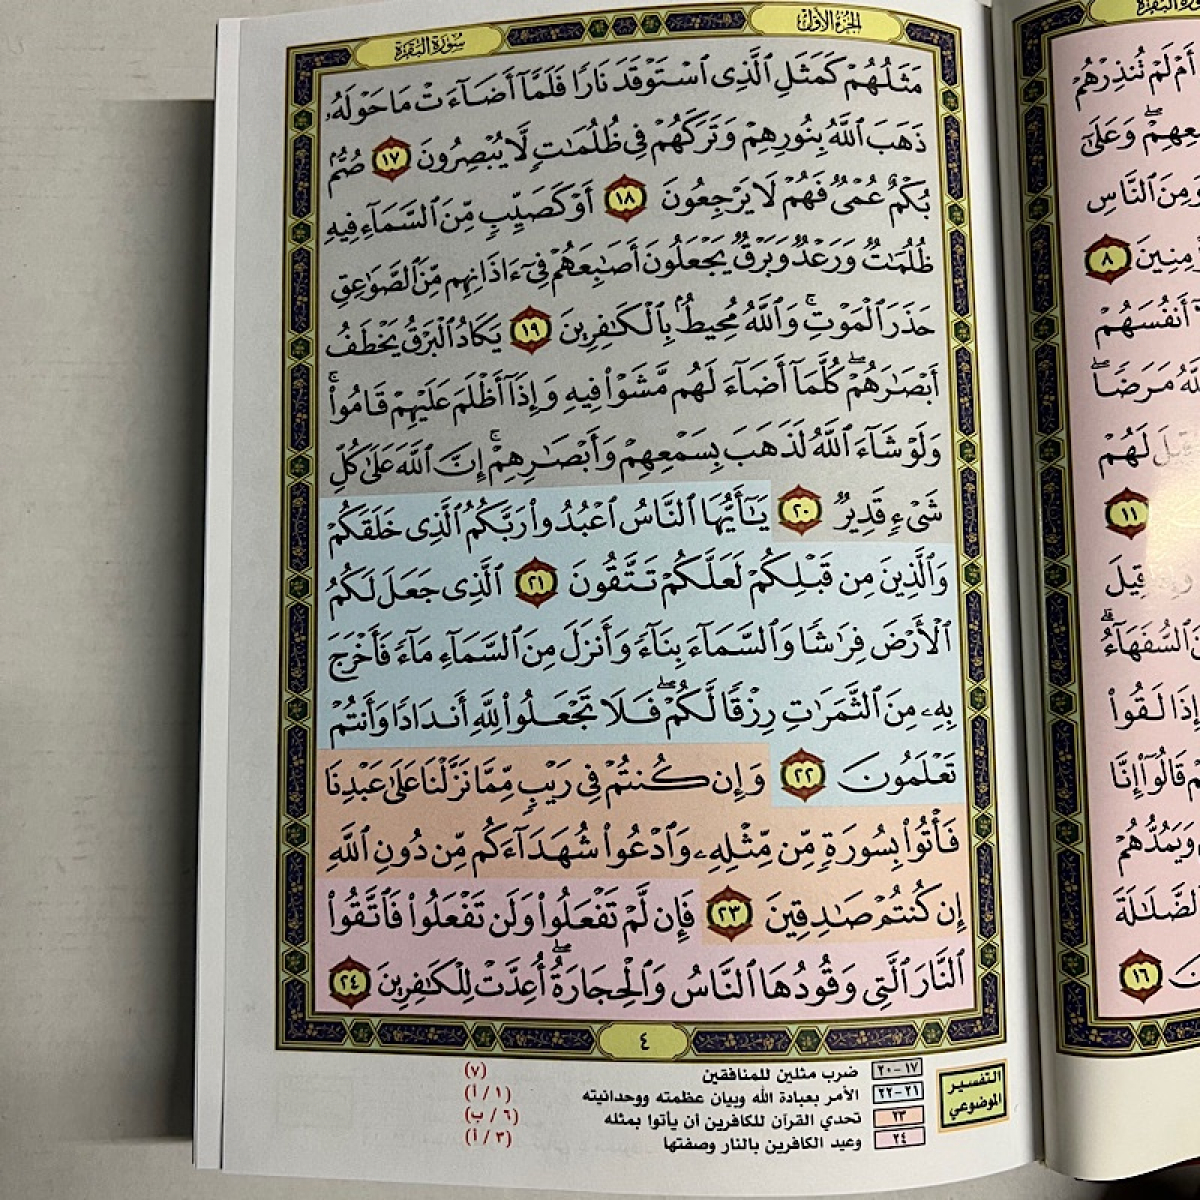 الجزء الأول
سورة البقرة
مَثَلُهُمْ كَمَثَلِ ٱلَّذِى ٱسْتَوْقَدَ نَارًا فَلَمَّآ أَضَآءَتْ مَا حَوْلَهُۥ
ذَهَبَ ٱللَّهُ بِنُورِهِمْ وَتَرَكَهُمْ فِى ظُلُمَٰتٍ لَّا يُبْصِرُونَ ١٧ صُمٌّۢ
بُكْمٌ عُمْىٌ فَهُمْ لَا يَرْجِعُونَ ١٨ أَوْ كَصَيِّبٍ مِّنَ ٱلسَّمَآءِ فِيهِ
ظُلُمَٰتٌ وَرَعْدٌ وَبَرْقٌ يَجْعَلُونَ أَصَٰبِعَهُمْ فِىٓ ءَاذَانِهِم مِّنَ ٱلصَّوَٰعِقِ
حَذَرَ ٱلْمَوْتِ ۚ وَٱللَّهُ مُحِيطٌۢ بِٱلْكَٰفِرِينَ ١٩ يَكَادُ ٱلْبَرْقُ يَخْطَفُ
أَبْصَٰرَهُمْ ۖ كُلَّمَآ أَضَآءَ لَهُم مَّشَوْا۟ فِيهِ وَإِذَآ أَظْلَمَ عَلَيْهِمْ قَامُوا۟ ۚ
وَلَوْ شَآءَ ٱللَّهُ لَذَهَبَ بِسَمْعِهِمْ وَأَبْصَٰرِهِمْ ۚ إِنَّ ٱللَّهَ عَلَىٰ كُلِّ
شَىْءٍ قَدِيرٌ ٢٠ يَٰٓأَيُّهَا ٱلنَّاسُ ٱعْبُدُوا۟ رَبَّكُمُ ٱلَّذِى خَلَقَكُمْ
وَٱلَّذِينَ مِن قَبْلِكُمْ لَعَلَّكُمْ تَتَّقُونَ ٢١ ٱلَّذِى جَعَلَ لَكُمُ
ٱلْأَرْضَ فِرَٰشًا وَٱلسَّمَآءَ بِنَآءً وَأَنزَلَ مِنَ ٱلسَّمَآءِ مَآءً فَأَخْرَجَ
بِهِۦ مِنَ ٱلثَّمَرَٰتِ رِزْقًا لَّكُمْ ۖ فَلَا تَجْعَلُوا۟ لِلَّهِ أَندَادًا وَأَنتُمْ
تَعْلَمُونَ ٢٢ وَإِن كُنتُمْ فِى رَيْبٍ مِّمَّا نَزَّلْنَا عَلَىٰ عَبْدِنَا
فَأْتُوا۟ بِسُورَةٍ مِّن مِّثْلِهِۦ وَٱدْعُوا۟ شُهَدَآءَكُم مِّن دُونِ ٱللَّهِ
إِن كُنتُمْ صَٰدِقِينَ ٢٣ فَإِن لَّمْ تَفْعَلُوا۟ وَلَن تَفْعَلُوا۟ فَٱتَّقُوا۟
ٱلنَّارَ ٱلَّتِى وَقُودُهَا ٱلنَّاسُ وَٱلْحِجَارَةُ ۖ أُعِدَّتْ لِلْكَٰفِرِينَ ٢٤
٤
التفسير الموضوعي
١٧-٢٠ ضرب مثلين للمنافقين (٧)
٢١-٢٢ الأمر بعبادة الله وبيان عظمته ووحدانيته (١ / أ)
٢٣ تحدي القرآن للكافرين أن يأتوا بمثله (٦ / ب)
٢٤ وعيد الكافرين بالنار وصفتها (٣ / أ)
أَمْ لَمْ تُنذِرْهُمْ
وَعَلَىٰٓ
وَمِنَ ٱلنَّاسِ
٨
أَنفُسَهُمْ
مَرَضًا ۖ
قِيلَ لَهُمْ
١١
قِيلَ
ٱلسُّفَهَآءُ ۗ
إِذَا لَقُوا۟
قَالُوٓا۟ إِنَّا
وَيَمُدُّهُمْ
ٱلضَّلَٰلَةَ
١٦